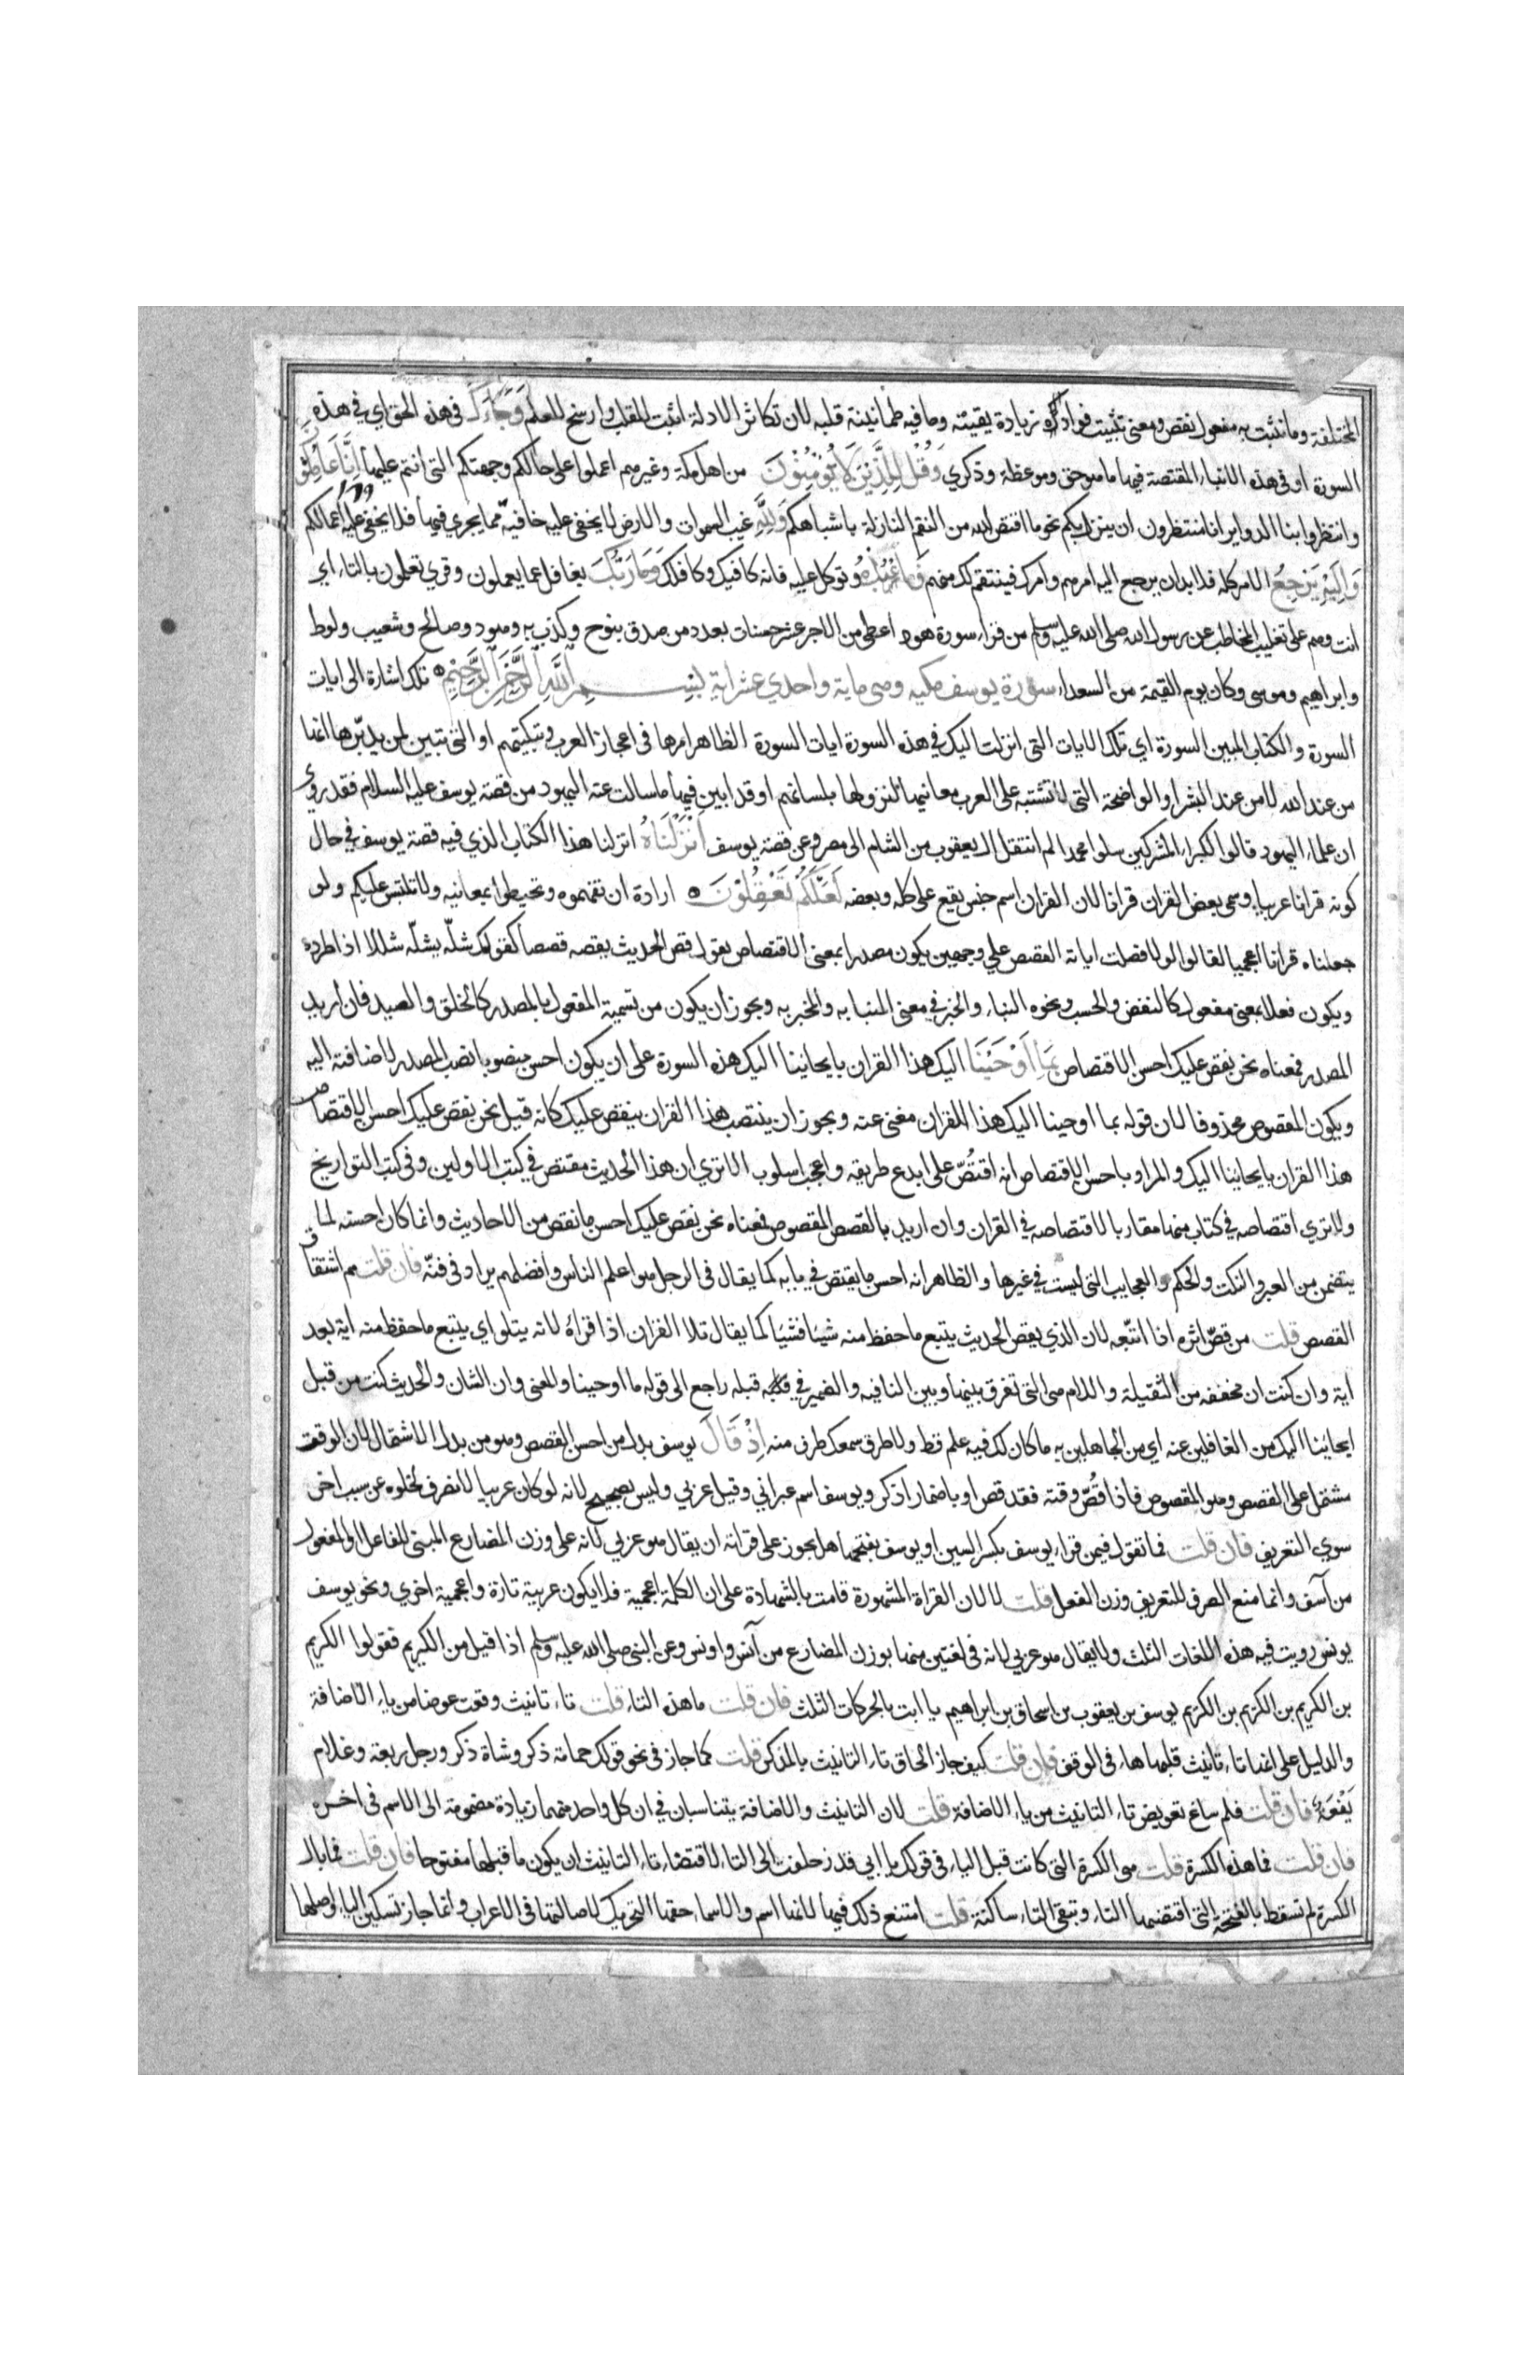 المختلفة وما نثبت به مفعول نقص ومعنى تثبيت فواده زيادة يقينه وما فيه طمانينة قلبه لان تكاثر الادلة اثبت للقلب وارسخ للعلم وَجَاءَكَ في هذه الحق اي في هذه
السورة او في هذه الانباء المقتصة فيها ما هو حق وموعظة وذكري وَقُلْ لِلَّذِينَ لَا يُؤْمِنُونَ من اهل مكة وغيرهم اعملوا على حالكم وجهتكم التي انتم عليها اِنَّا عَامِلُونَ
وانتظروا بنا الدواير انا منتظرون ان ينزل بكم نحو ما اقتص الله من النقم النازلة باشباهكم وَلِلَّهِ غيب السموات والارض لا يخفى عليه خافية مما يجري فيها فلا يخفى عليه اعمالكم
وَاِلَيْهِ يَرْجِعُ الامر كله فلا بد ان يرجع اليه امرهم وامرك فينتقم لك منهم فَاعْبُدْهُ وتوكل عليه فانه كافيك وكافلك وَمَا رَبُّكَ بغافل عما يعملون وقري تعملون بالتاء اي
انت وهم على تغليب المخاطب عن رسول الله صلى الله عليه وسلم من قراء سورة هود اعطي من الاجر عشر حسنات بعدد من صدق بنوح وكذب به وهود وصالح وشعيب ولوط
وابراهيم وموسى وكان يوم القيمة من السعداء سورة يوسف مكيه وهي ماية واحدي عشر اية بِسْمِ اللَّهِ الرَّحْمَنِ الرَّحِيمِ تلك اشارة الى ايات
السورة والكتاب المبين السورة اي تلك الايات التي انزلت اليك في هذه السورة ايات السورة الظاهر امرها في اعجاز العرب وتبكيتهم او التي تتبين لمن يدبرها انها
من عند الله لا من عند البشر او الواضحة التي لا تشتبه على العرب معانيها لنزولها بلسانهم او قد ابين فيها ما سالت عنه اليهود من قصة يوسف عليه السلام فقد روي
ان علماء اليهود قالوا لكبراء المشركين سلوا محمدا لم انتقل ال يعقوب من الشام الى مصر وعن قصة يوسف اَنْزَلْنَاهُ انزلنا هذا الكتاب الذي فيه قصة يوسف في حال
كونه قرانا عربيا وسمى بعض القران قرانا لان القران اسم جنس يقع على كله وبعضه لَعَلَّكُمْ تَعْقِلُونَ ارادة ان تفهموه وتحيطوا بمعانيه ولا تلتبس عليكم ولو
جعلناه قرانا اعجميا لقالوا لولا فصلت اياته القصص علي وجهين يكون مصدرا بمعنى الاقتصاص يقول قص الحديث يقصه قصصا كقولك شلّه يشلّه شللا اذا طرده
ويكون فعلا بمعنى مفعول كالنفض والحسب ونحوه النباء والخبر في معنى المنبا به والمخبر به ويجوز ان يكون من تسمية المفعول بالمصدر كالخلق والصيد فان اريد
المصدر فمعناه نحن نقص عليك احسن الاقتصاص بِمَا اَوْحَيْنَا اليك هذا القران بايحائنا اليك هذه السورة على ان يكون احسن منصوبا نصب المصدر لاضافته اليه
ويكون المقصوص محذوفا لان قوله بما اوحينا اليك هذا القران مغني عنه ويجوز ان ينتصب هذا القران بنقص عليك كانه قيل نحن نقص عليك احسن الاقتصاص
هذا القران بايحائنا اليك والمراد باحسن الاقتصاص انه اقتُصّ على ابدع طريقه واعجب اسلوب الا تري ان هذا الحديث مقتص في كتب الاولين وفي كتب التواريخ
ولا تري اقتصاصه في كتاب منها مقاربا لاقتصاصه في القران وان اريد بالقصص المقصوص فمعناه نحن نقص عليك احسن ما نقص من الاحاديث وانما كان احسنه لما
يتضمن من العبر والنكت والحكم والعجايب التي ليست في غيرها والظاهر انه احسن ما يقتص في بابه كما يقال في الرجل هو اعلم الناس وافضلهم يراد في فنّه فان قلت مم اشتقاق
القصص قلت من قصّ اثره اذا اتبعه لان الذي يقص الحديث يتبع ما حفظ منه شيئا فشيئا كما يقال تلا القران اذا قراه لانه يتلو اي يتبع ما حفظ منه اية بعد
اية وان كنت ان مخففه من الثقيلة واللام هي التي تفرق بينها وبين النافيه والضمير في قبله راجع الى قوله ما اوحينا والمعنى وان الشان والحديث كنت من قبل
ايحائنا اليك من الغافلين عنه اي من الجاهلين به ما كان لك فيه علم قط ولا طرق سمعك طرف منه اِذْ قَالَ يوسف بدل من احسن القصص وهو من بدل الاشتمال لان الوقت
مشتمل على القصص وهو المقصوص فاذا قُصّ وقته فقد قص او باضمار اذكر ويوسف اسم عبراني وقيل عربي وليس بصحيح لانه لو كان عربيا لانصرف لخلوه عن سبب اخر
سوي التعريف فان قلت فما تقول فيمن قراء يوسف بكسر السين او يوسف بفتحها هل يجوز على قراته ان يقال هو عربي لانه على وزن المضارع المبني للفاعل او المفعول
من آسف وانما منع الصرف للتعريف وزن الفعل قلت لا لان القراة المشهورة قامت بالشهادة على ان الكلمة اعجمية فلا يكون عربية تارة واعجمية اخري ونحو يوسف
يونس رويت فيه هذه اللغات الثلث ولا يقال هو عربي لانه في لغتين منها بوزن المضارع من آنس واونس وعن النبي صلى الله عليه وسلم اذا قيل من الكريم فقولوا الكريم
بن الكريم بن الكريم بن الكريم يوسف بن يعقوب بن اسحاق بن ابراهيم يا ابت بالحركات الثلث فان قلت ما هذه التاء قلت تاء تانيث وقعت عوضا من ياء الاضافة
والدليل على انها تاء تانيث قلبها هاء في الوقف فان قلت كيف جاز الحاق تاء التانيث بالمذكر قلت كما جاز في نحو قولك حمامة ذكر وشاة ذكر ورجل ربعة وغلام
يَفْعَة فان قلت فلم ساغ تعويض تاء التانيث من ياء الاضافة قلت لان التانيث والاضافة يتناسبان في ان كل واحد منهما زيادة مضمومة الى الاسم في اخره
فان قلت فما هذه الكسرة قلت هي الكسرة التي كانت قبل الياء في قولك يا ابي قد زحلفت الى التاء لاقتضاء تاء التانيث ان يكون ما قبلها مفتوحا فان قلت فما بال
الكسرة لم تسقط بالفتحة التي اقتضتها التاء وتبقى التاء ساكنة قلت امتنع ذلك فيها لانها اسم والاسماء حقها التحريك لاصالتها في الاعراب وانما جاز تسكين الياء واصلها